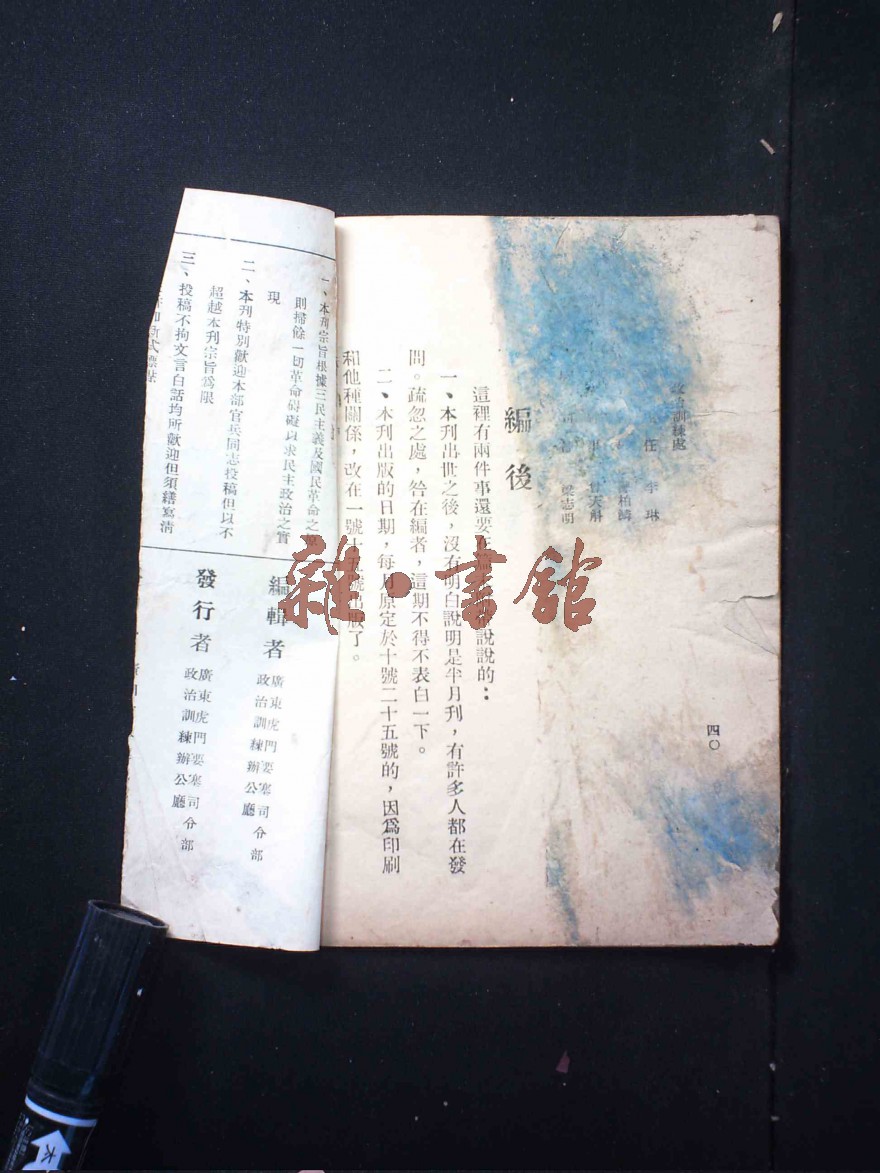 政治訓練處
任 李琳
柏麟
天斛
梁志明
四〇
編後
這裡有兩件事還要在說說的：
一、本刊出世之後，沒有明白說明是半月刊，有許多人都在發
問。疏忽之處，咎在編者，這期不得不表白一下。
二、本刊出版的日期，每月原定於十號二十五號的，因爲印刷
和他種關係，改在一號十五號出版了。
一、本刊宗旨根據三民主義及國民革命之
則掃除一切革命碍礙以求民主政治之實
現
二、本刊特別歡迎本部官兵同志投稿但以不
超越本刊宗旨爲限
三、投稿不拘文言白話均所歡迎但須繕寫淸
編輯者
廣東虎門要塞司令部
政治訓練辦公廳
發行者
廣東虎門要塞司令部
政治訓練辦公廳
雜·書館